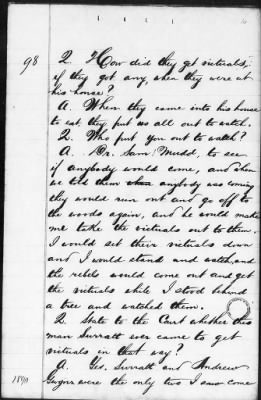 98
Q. How did they get victuals,
if they got any, when they were at
his house?
A. When they came into his house
to eat they put us all out to watch.
Q. Who put you out to watch?
A. Dr. Sam. Mudd, to see
if anybody would come, and when
we told them when anybody was coming
they would run out and go off to
the woods again, and he would make
me take the victuals out to them.
I would set their victuals down
and I would stand and watch, and
the rebels would come out and get
the victuals while I stood behind
a tree and watched them.
Q. State to the Court whether this
man Surratt ever came to get
victuals in that way?
A. Yes. Surratt and Andrew
Gwynn were the only two I saw come
1890